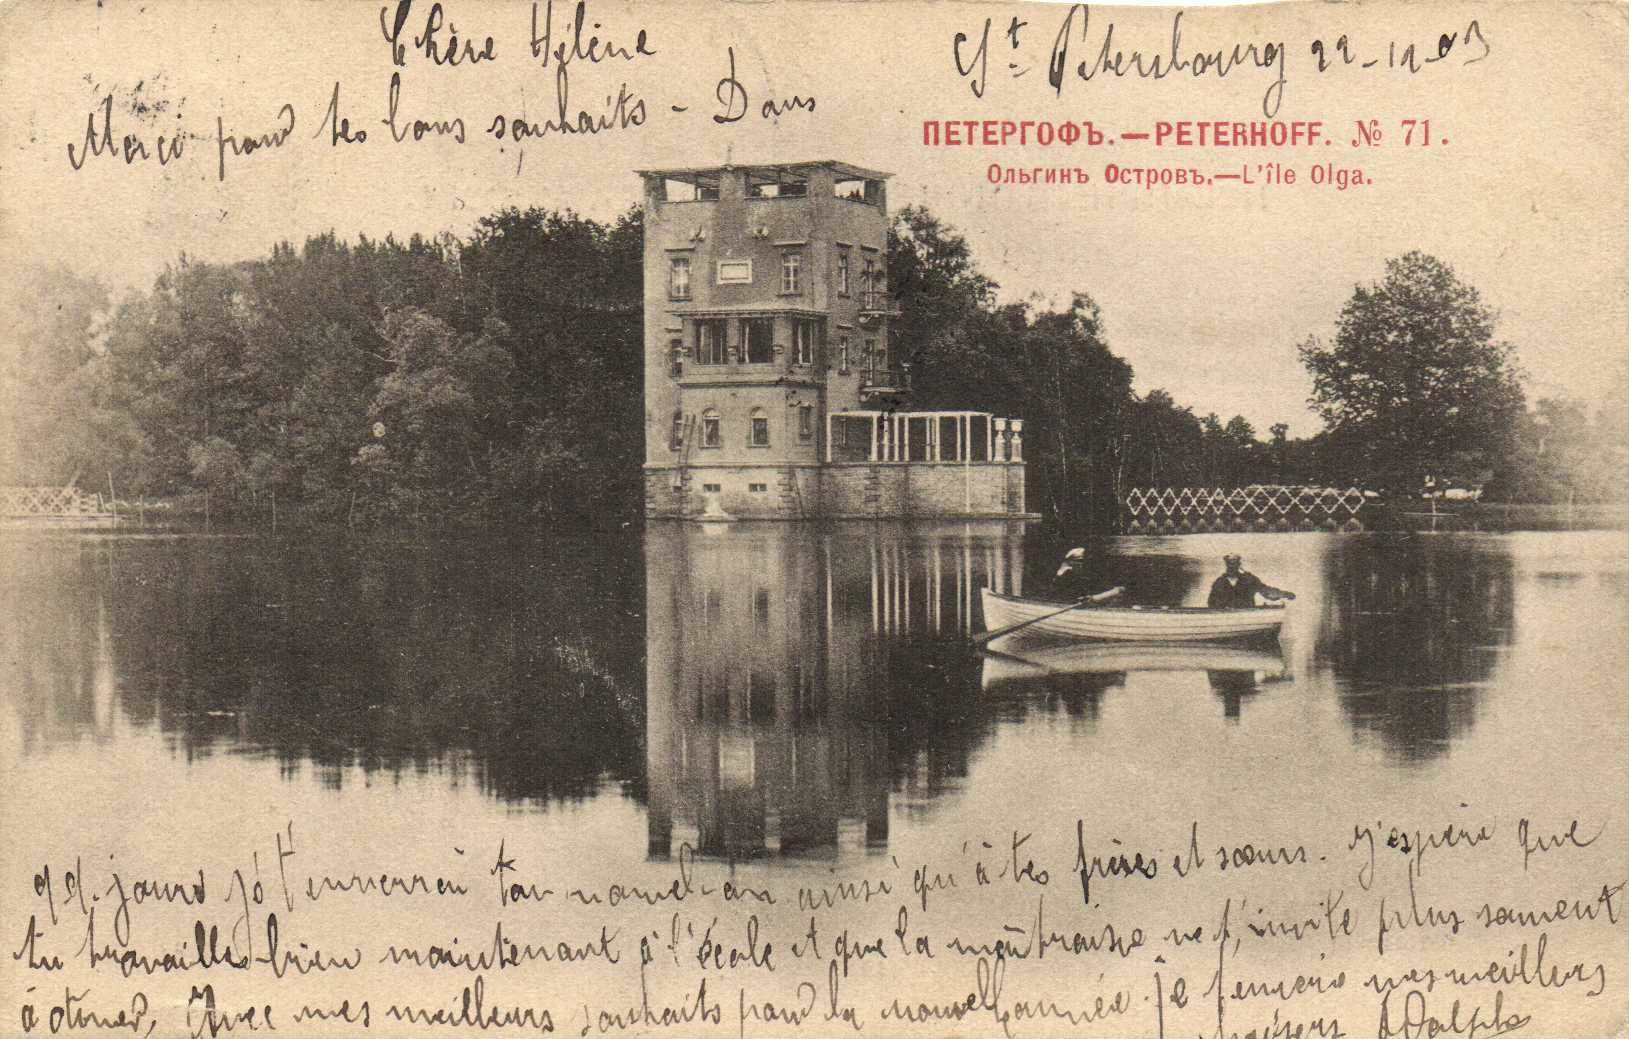 Chère Hélène
St Petersbourg 22-12-03
Merci pour tes bons souhaits - Dans
ПЕТЕРГОФЪ.—PETERHOFF. № 71.
Ольгинъ Островъ.—L'île Olga.
qq. jours je t'enverrai ton nouvel-an ainsi qu'à tes frères et sœurs. J'espère que
tu travailles bien maintenant à l'école et que la maîtraise ne t'invite plus souvent
à Avec mes meilleurs souhaits pour la nouvelle année je t'envoie mes meilleurs
baisers Adolphe